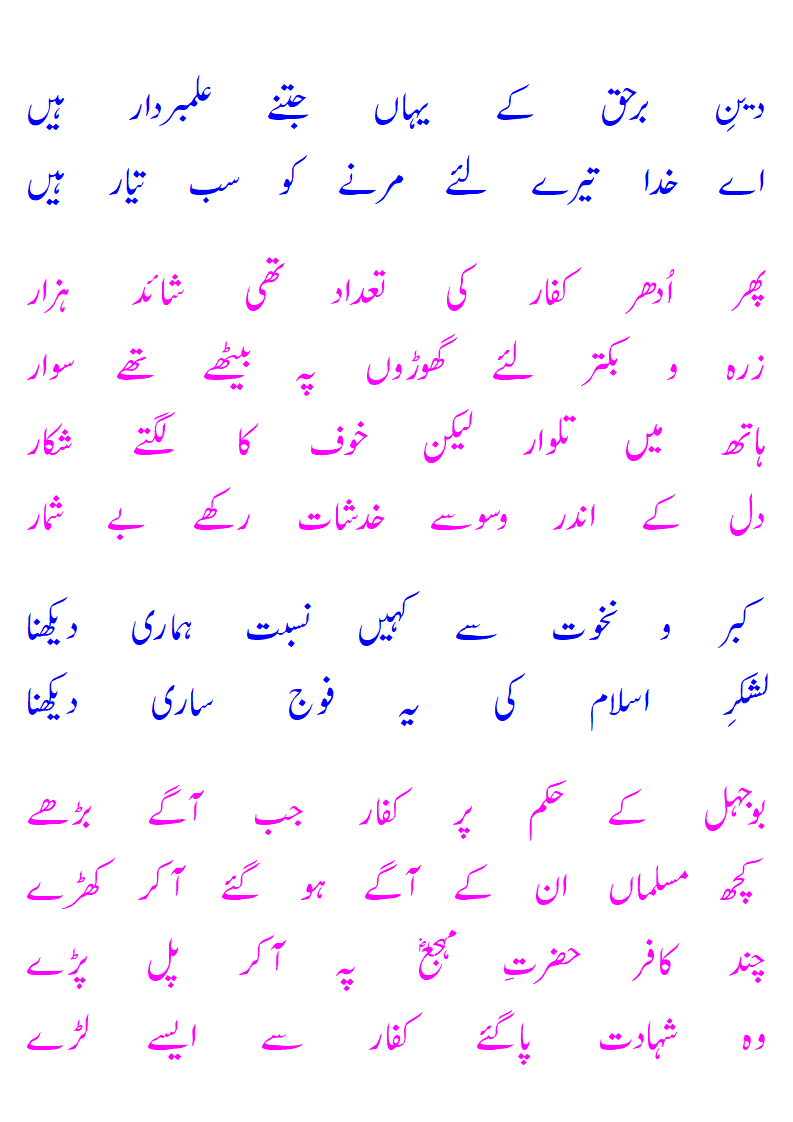 دینِ برحق کے یہاں جتنے علمبردار ہیں
اے خدا تیرے لئے مرنے کو سب تیار ہیں
پھر اُدھر کفار کی تعداد تھی شائد ہزار
زرہ و بکتر لئے گھوڑوں پہ بیٹھے تھے سوار
ہاتھ میں تلوار لیکن خوف کا لگتے شکار
دل کے اندر وسوسے خدشات رکھے بے شمار
کبر و نخوت سے کہیں نسبت ہماری دیکھنا
لشکرِ اسلام کی یہ فوج ساری دیکھنا
بوجہل کے حکم پر کفار جب آگے بڑھے
کچھ مسلماں ان کے آگے ہو گئے آکر کھڑے
چند کافر حضرتِ مہجعؓ پہ آکر پل پڑے
وہ شہادت پاگئے کفار سے ایسے لڑے